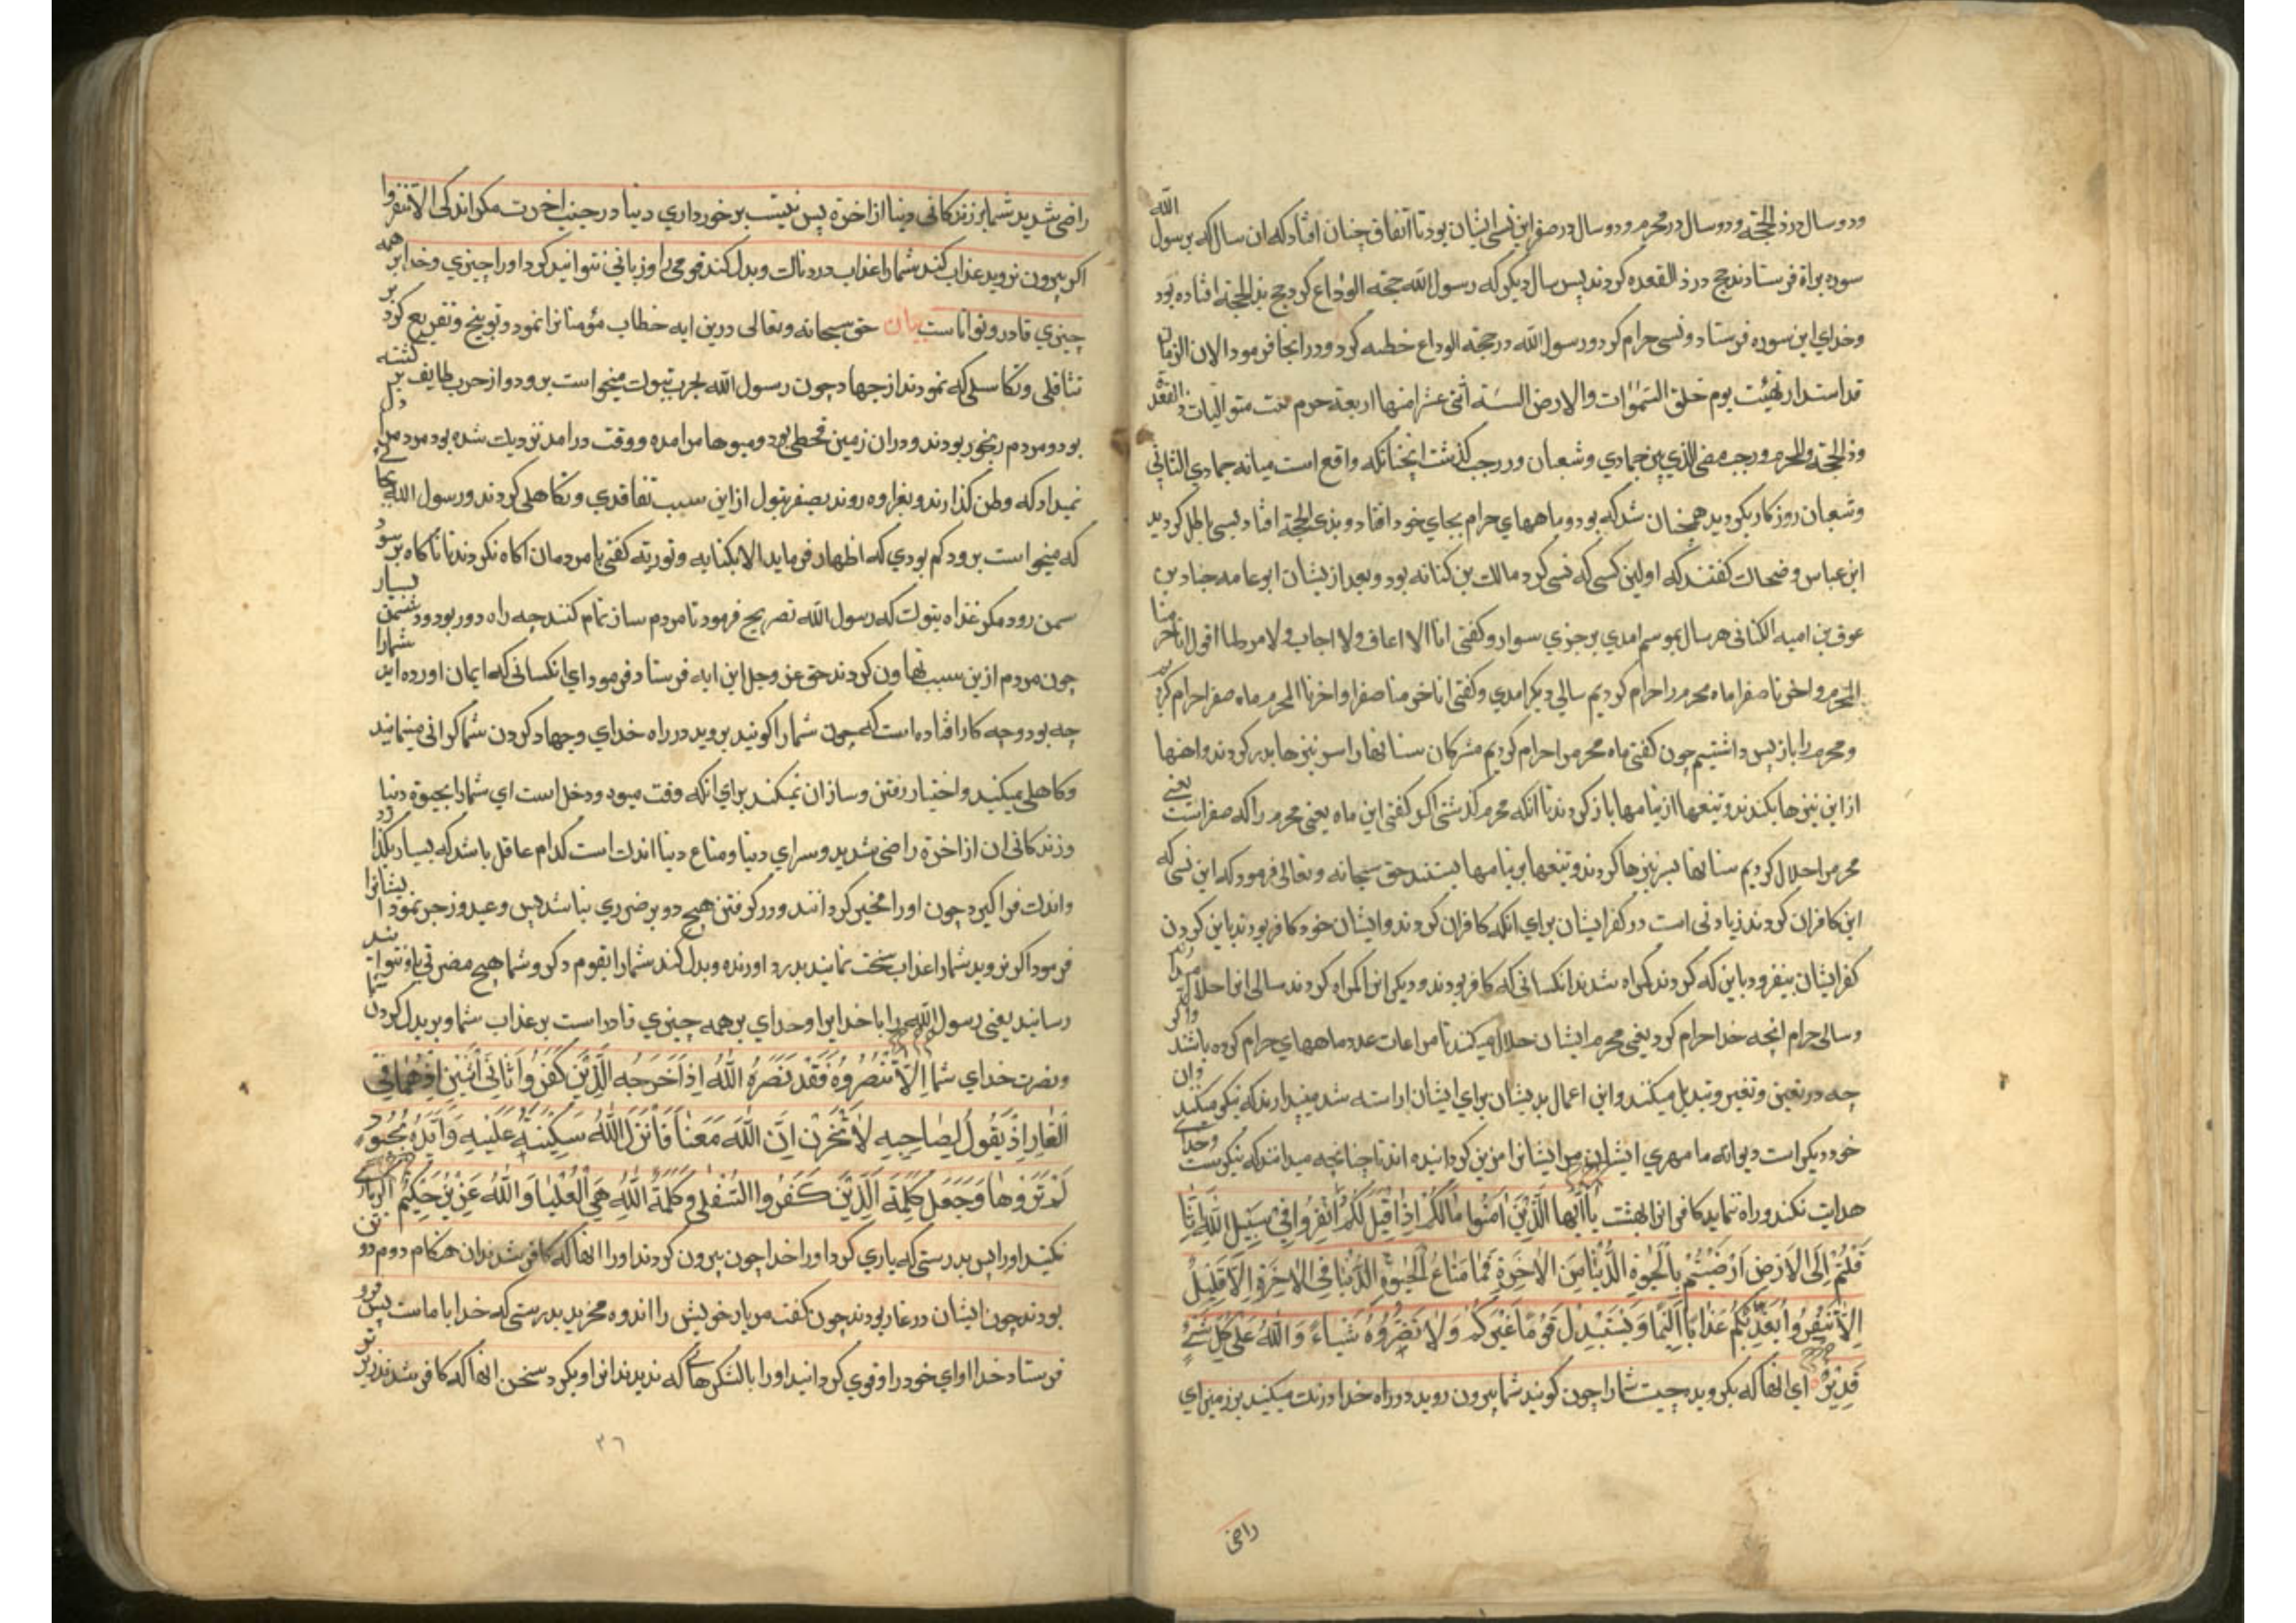 ودو سال در ذالحجة ودو سال در محرم ودو سال در صفر این نسی ایشان بود تا اتفاق چنان افتاد که ان سال که بر رسول الله
سوره براة فرستادند حج در ذالقعده کردند پس سال دیکر که رسول الله حجة الوداع کرد حج بذالحجة افتاده بود
وخدای این سوره فرستاد ونسی حرام کرد ورسول الله در حجة الوداع خطبه کرد ودر انجا فرمود الا ان الزمان
قد استدار کهیئت یوم خلق السموات والارض السنة اثنی عشر منها اربعة حرم ثلث متوالیات ذالقعدة
وذالحجة والمحرم ورجب مضر الذی بین جمادی وشعبان ورجب کذشت انچنانکه واقع است میانه جمادی الثانی
وشعبان روزکار بکردید همچنان شد که بود وماههای حرام بجای خود افتاد وبذی الحجة افتاد نسی باطل کردید
ابن عباس وضحاک کفتند که اولین کسی که نسی کرد مالک بن کنانه بود وبعد از یشان ابو عامه جناد بن
عوف بن امیه الکنانی هر سال بموسم امدی بر خری سوار وکفتی انا الا اعاف ولا اجاب ولا مرد لما اقول انا حرمنا
المحرم واخرنا صفرا ماه محرم را حرام کردیم سالی دیکر امدی وکفتی انا حرمنا صفرا واخرنا المحرم ماه صفر احرام کردیم
ومحرم را باز پس داشتیم چون کفتی ماه محرم را حرام کردیم مشرکان سنانها را از سر نیزها بدر کردند واهنها
از این نیزها بکندند وتیغها از نیامها باز کردند تا انکه محرم کذشتی اکر کفتی این ماه یعنی محرم را که صفر است یعنی
محرم را حلال کردیم سنانها بسر نیزها کردند وتیغها بر نیامها بستند حق سبحانه وتعالی فرمود که این نسی که
این کافران کردند زیادتی است در کفر ایشان برای انکه کافران کردند وایشان خود کافر بودند باین کردن
کفر ایشان بیفزود باین که کردند کمراه شدند انکسانی که کافر بودند ودیکرانرا کمراه کردند سالی انرا حلال کردند
وسالی حرام انچه خدا حرام کرد یعنی محرم ایشان حلال میکنند تا مراعات عدد ماههای حرام کرده باشند
چه در تعین وتغیر وتبدیل میکنند واین اعمال بد یشان برای ایشان اراسته شد میپندارند که نیکی میکنند وان
خود دیکر است دیوانه ما مهری ایشان مر ایشانرا مزین کردانیده اند تا چنانچه میدانند که نیکوست وخدای
هدایت نکند وراه ننماید کافرانرا بهشت یَا اَیُّهَا الَّذِیْنَ اٰمَنُوْا مَا لَکُمْ اِذَا قِیْلَ لَکُمُ انْفِرُوْا فِیْ سَبِیْلِ اللّٰهِ اثَّا
قَلْتُمْ اِلَی الْاَرْضِ اَرَضِیْتُمْ بِالْحَیٰوةِ الدُّنْیَا مِنَ الْاٰخِرَةِ فَمَا مَتَاعُ الْحَیٰوةِ الدُّنْیَا فِی الْاٰخِرَةِ اِلَّا قَلِیْلٌ
اِلَّا تَنْفِرُوْا یُعَذِّبْکُمْ عَذَابًا اَلِیْمًا وَیَسْتَبْدِلْ قَوْمًا غَیْرَکُمْ وَلَا تَضُرُّوْهُ شَیْـًٔا وَاللّٰهُ عَلٰی کُلِّ شَیْءٍ
قَدِیْرٌ ای انها که بکرویدید چیست شمارا چون کویند شما بیرون روید در راه خدا درنک میکنید بر زمین ای
راضی
راضی شدید شما بر زندکانی دنیا از اخرة پس نیست برخورداری دنیا در جنب اخرت مکر اندکی الا تنفروا
اکر بیرون نروید عذاب کند شمارا عذاب دردناک وبدل کند قومی را وزیانی نتوانید کرد اورا چیزی وخدا بر همه
چیزی قادر وتواناست بیان حق سبحانه وتعالی درین ایه خطاب مؤمنانرا نمود وتوبیخ وتقریع کرد بر
تثاقلی وتکاسلی که نمودند از جهاد چون رسول الله بحرب تبوک میخواست برود واز حرب طایف بر کشته
بود ومردم رنجور بودند ودران زمین قحطی بود ومیوها مر امده ووقت درامد نزدیک شده بود مردم را دل
نمیداد که وطن کذارند وبغزاوه روند بصفر تبوک از این سبب تقاقدی وتکاهلی کردند ورسول الله بجائی
که میخواست برود کم بودی که اظهار فرماید الا بکنایه وتوریه کفتی تا مردمان اکاه نکردند تا ناکاه بر سر
سمن رود مکر غذاه بتوک که رسول الله تصریح فرمود تا مردم ساز تمام کنند چه راه دور بود ودشمن بسیار
چون مردم از ین سبب تهاون کردند حق عز وجل این ایه فرستاد فرمود ای انکسانی که ایمان اورده اید شمارا
چه بود وچه کار افتاده است که چون شمارا کویند بروید در راه خدای وجهاد کردن شما کرانی مینمائید
وکاهلی میکنید واختیار رفتن وساز ان نمیکنید برای انکه وقت میوه ودخل است ای شما بحیوة دنیا
وزندکانی ان از اخرة راضی شدید وسرای دنیا ومتاع دنیا اندک است کدام عاقل باشد که بسیار بکذارد
واندک فراکیرد چون اورا مخیر کردانند ودر کرفتن هیچ دو بر ضرری نباشد پس وعید وزجر نمود ایشانرا
فرمود اکر نروید شمارا عذاب سخت نمایند بدرد اورنده وبدل کند شمارا بقوم دکر وشما هیچ مضرتی باو نتوانید
رسانید یعنی رسول الله را یا خدایرا وخدای بر همه چیزی قادر است بر عذاب شما وبر بدل کردن شما
ونصرت خدای شما اِلَّا تَنْصُرُوْهُ فَقَدْ نَصَرَهُ اللّٰهُ اِذْ اَخْرَجَهُ الَّذِیْنَ کَفَرُوْا ثَانِیَ اثْنَیْنِ اِذْ هُمَا فِی
الْغَارِ اِذْ یَقُوْلُ لِصَاحِبِهِ لَا تَحْزَنْ اِنَّ اللّٰهَ مَعَنَا فَاَنْزَلَ اللّٰهُ سَکِیْنَتَهُ عَلَیْهِ وَاَیَّدَهُ بِجُنُوْدٍ
لَمْ تَرَوْهَا وَجَعَلَ کَلِمَةَ الَّذِیْنَ کَفَرُوا السُّفْلٰی وَکَلِمَةُ اللّٰهِ هِیَ الْعُلْیَا وَاللّٰهُ عَزِیْزٌ حَکِیْمٌ اکر یاری
نکنید اورا پس بدرستی که یاری کرد اورا خدا چون بیرون کردند اورا انها که کافر شدند ان هنکام دوم دو تن
بودند چون ایشان در غار بودند چون کفت مر یار خویش را اندوه مخرید بدرستی که خدا با ماست پس فرو
فرستاد خدا اوای خود را وقوی کردانید اورا بالشکرهائی که ندیدند انرا وبکرد سخن انها که کافر شدند زیر تر
۳۶